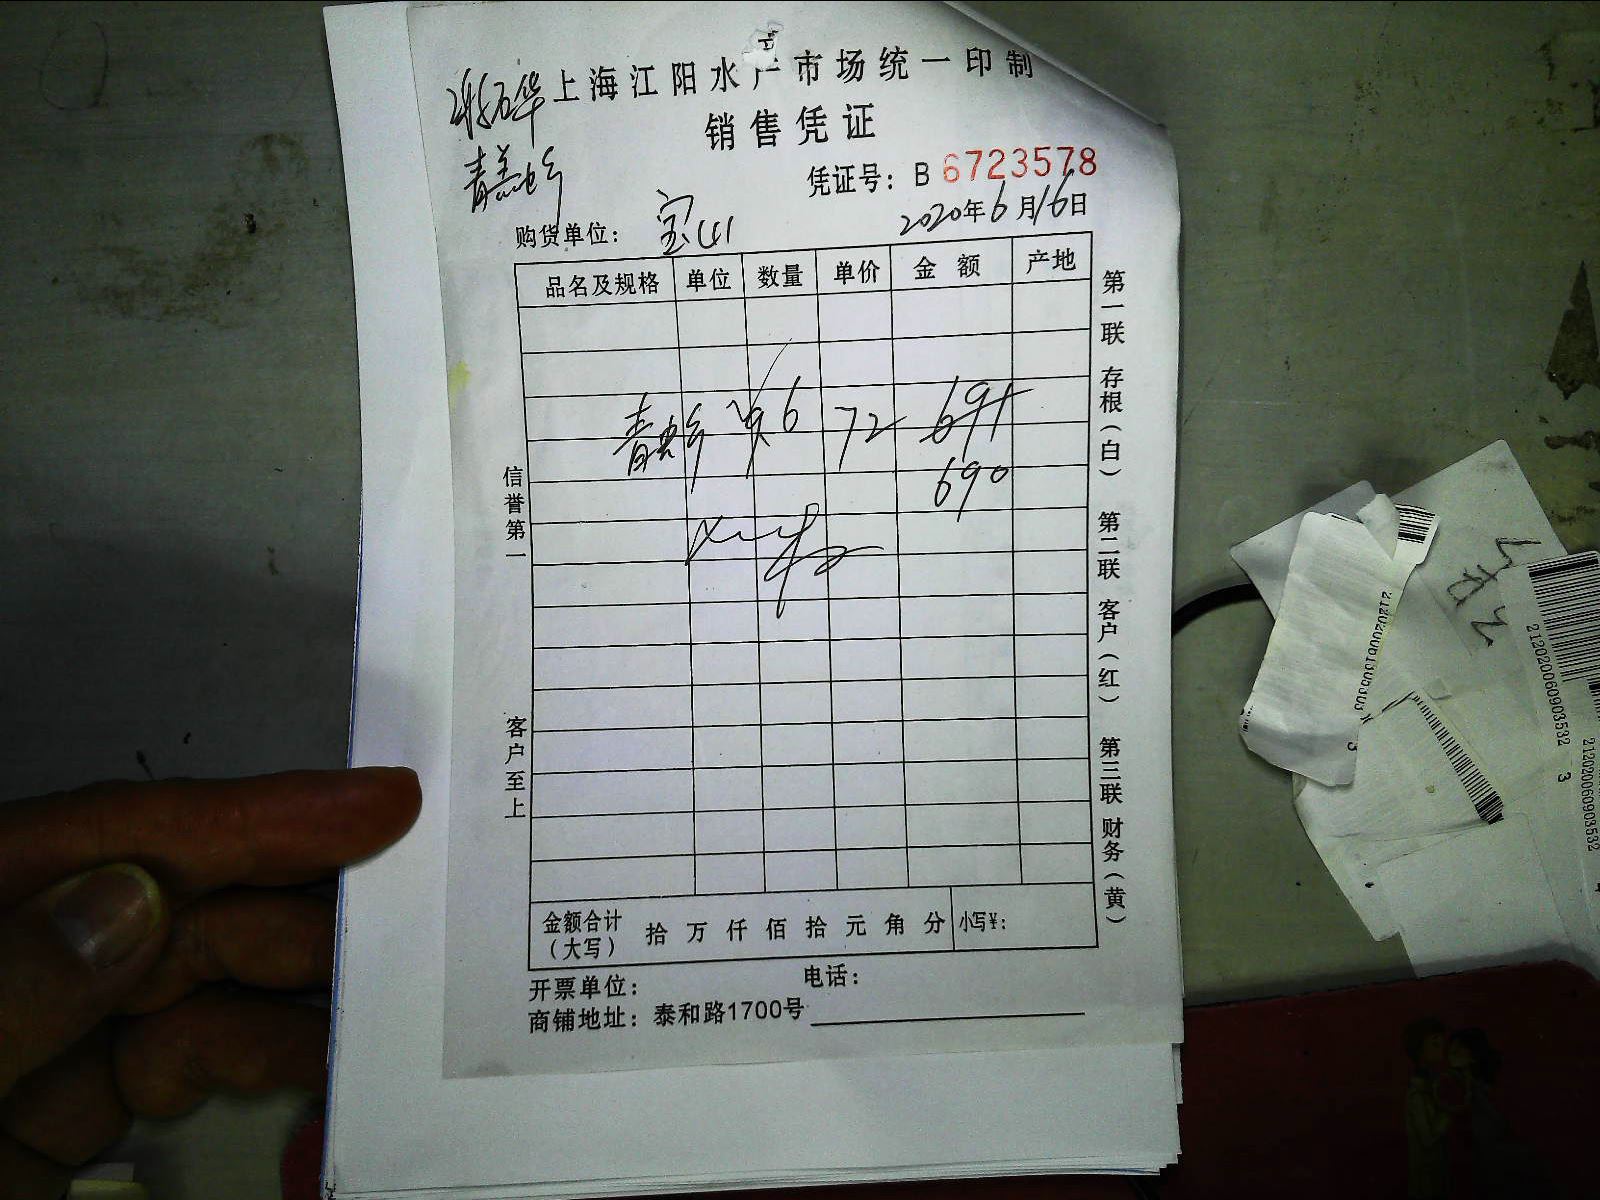 上海江阳水产市场统一印制
销售凭证
凭证号：B 6723578
购货单位：宝山
2020年6月16日
品名及规格 单位 数量 单价 金额 产地
9.6 72 691
690
信誉第一
客户至上
第一联 存根（白） 第二联 客户（红） 第三联 财务（黄）
金额合计（大写） 拾 万 仟 佰 拾 元 角 分 小写¥：
开票单位： 电话：
商铺地址：泰和路1700号
212020060903532 3
212020060903532